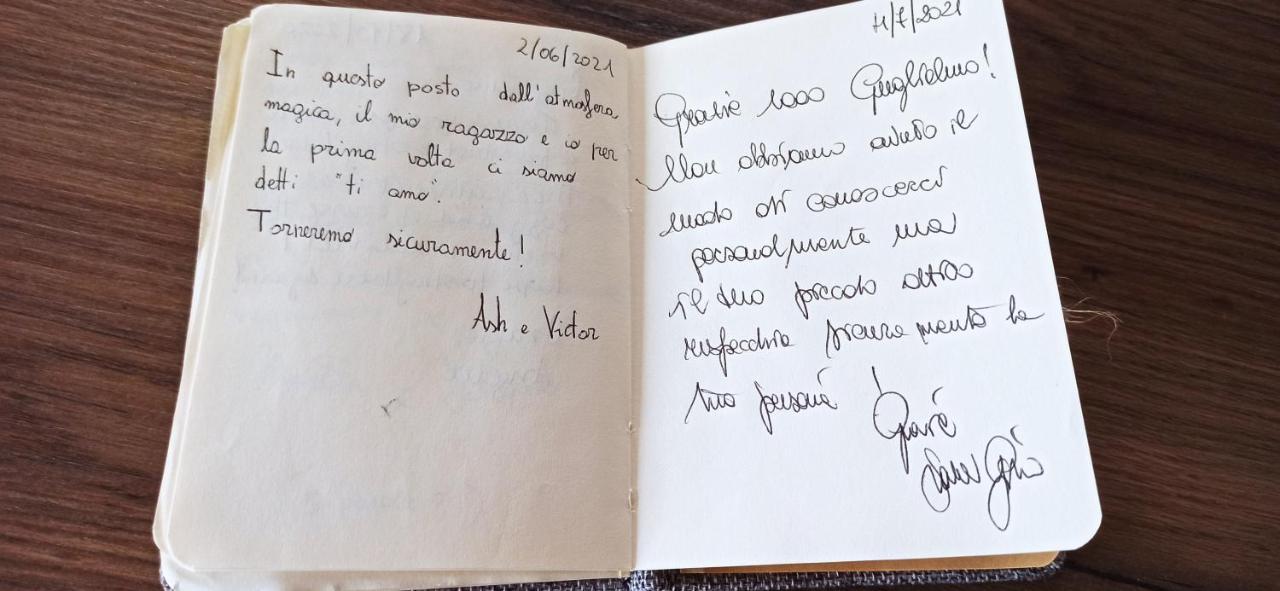 2/06/2021
In questo posto dall'atmosfera
magica, il mio ragazzo e io per
la prima volta ci siamo
detti "ti amo".
Torneremo sicuramente!
Ash e Victor
11/7/2021
Grazie 1000 Guglielmo!
Non abbiamo avuto il
modo di conoscerci
personalmente ma
il tuo piccolo
rispecchia sicuramente la
tua persona!